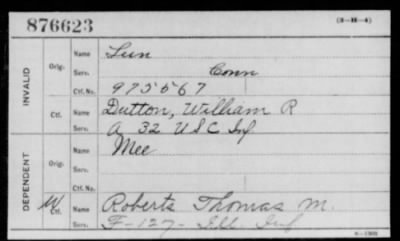 876623
(3-H-4)
INVALID
Orig.
Name
Serv. Conn
Ctf. No. 975567
Ctf.
Name Dutton, William R
Serv. A 32 USC Inf
DEPENDENT
Orig.
Name Mee
Serv.
Ctf. No.
W Ctf.
Name Roberts Thomas M.
Serv. F-127- Ill. Inf